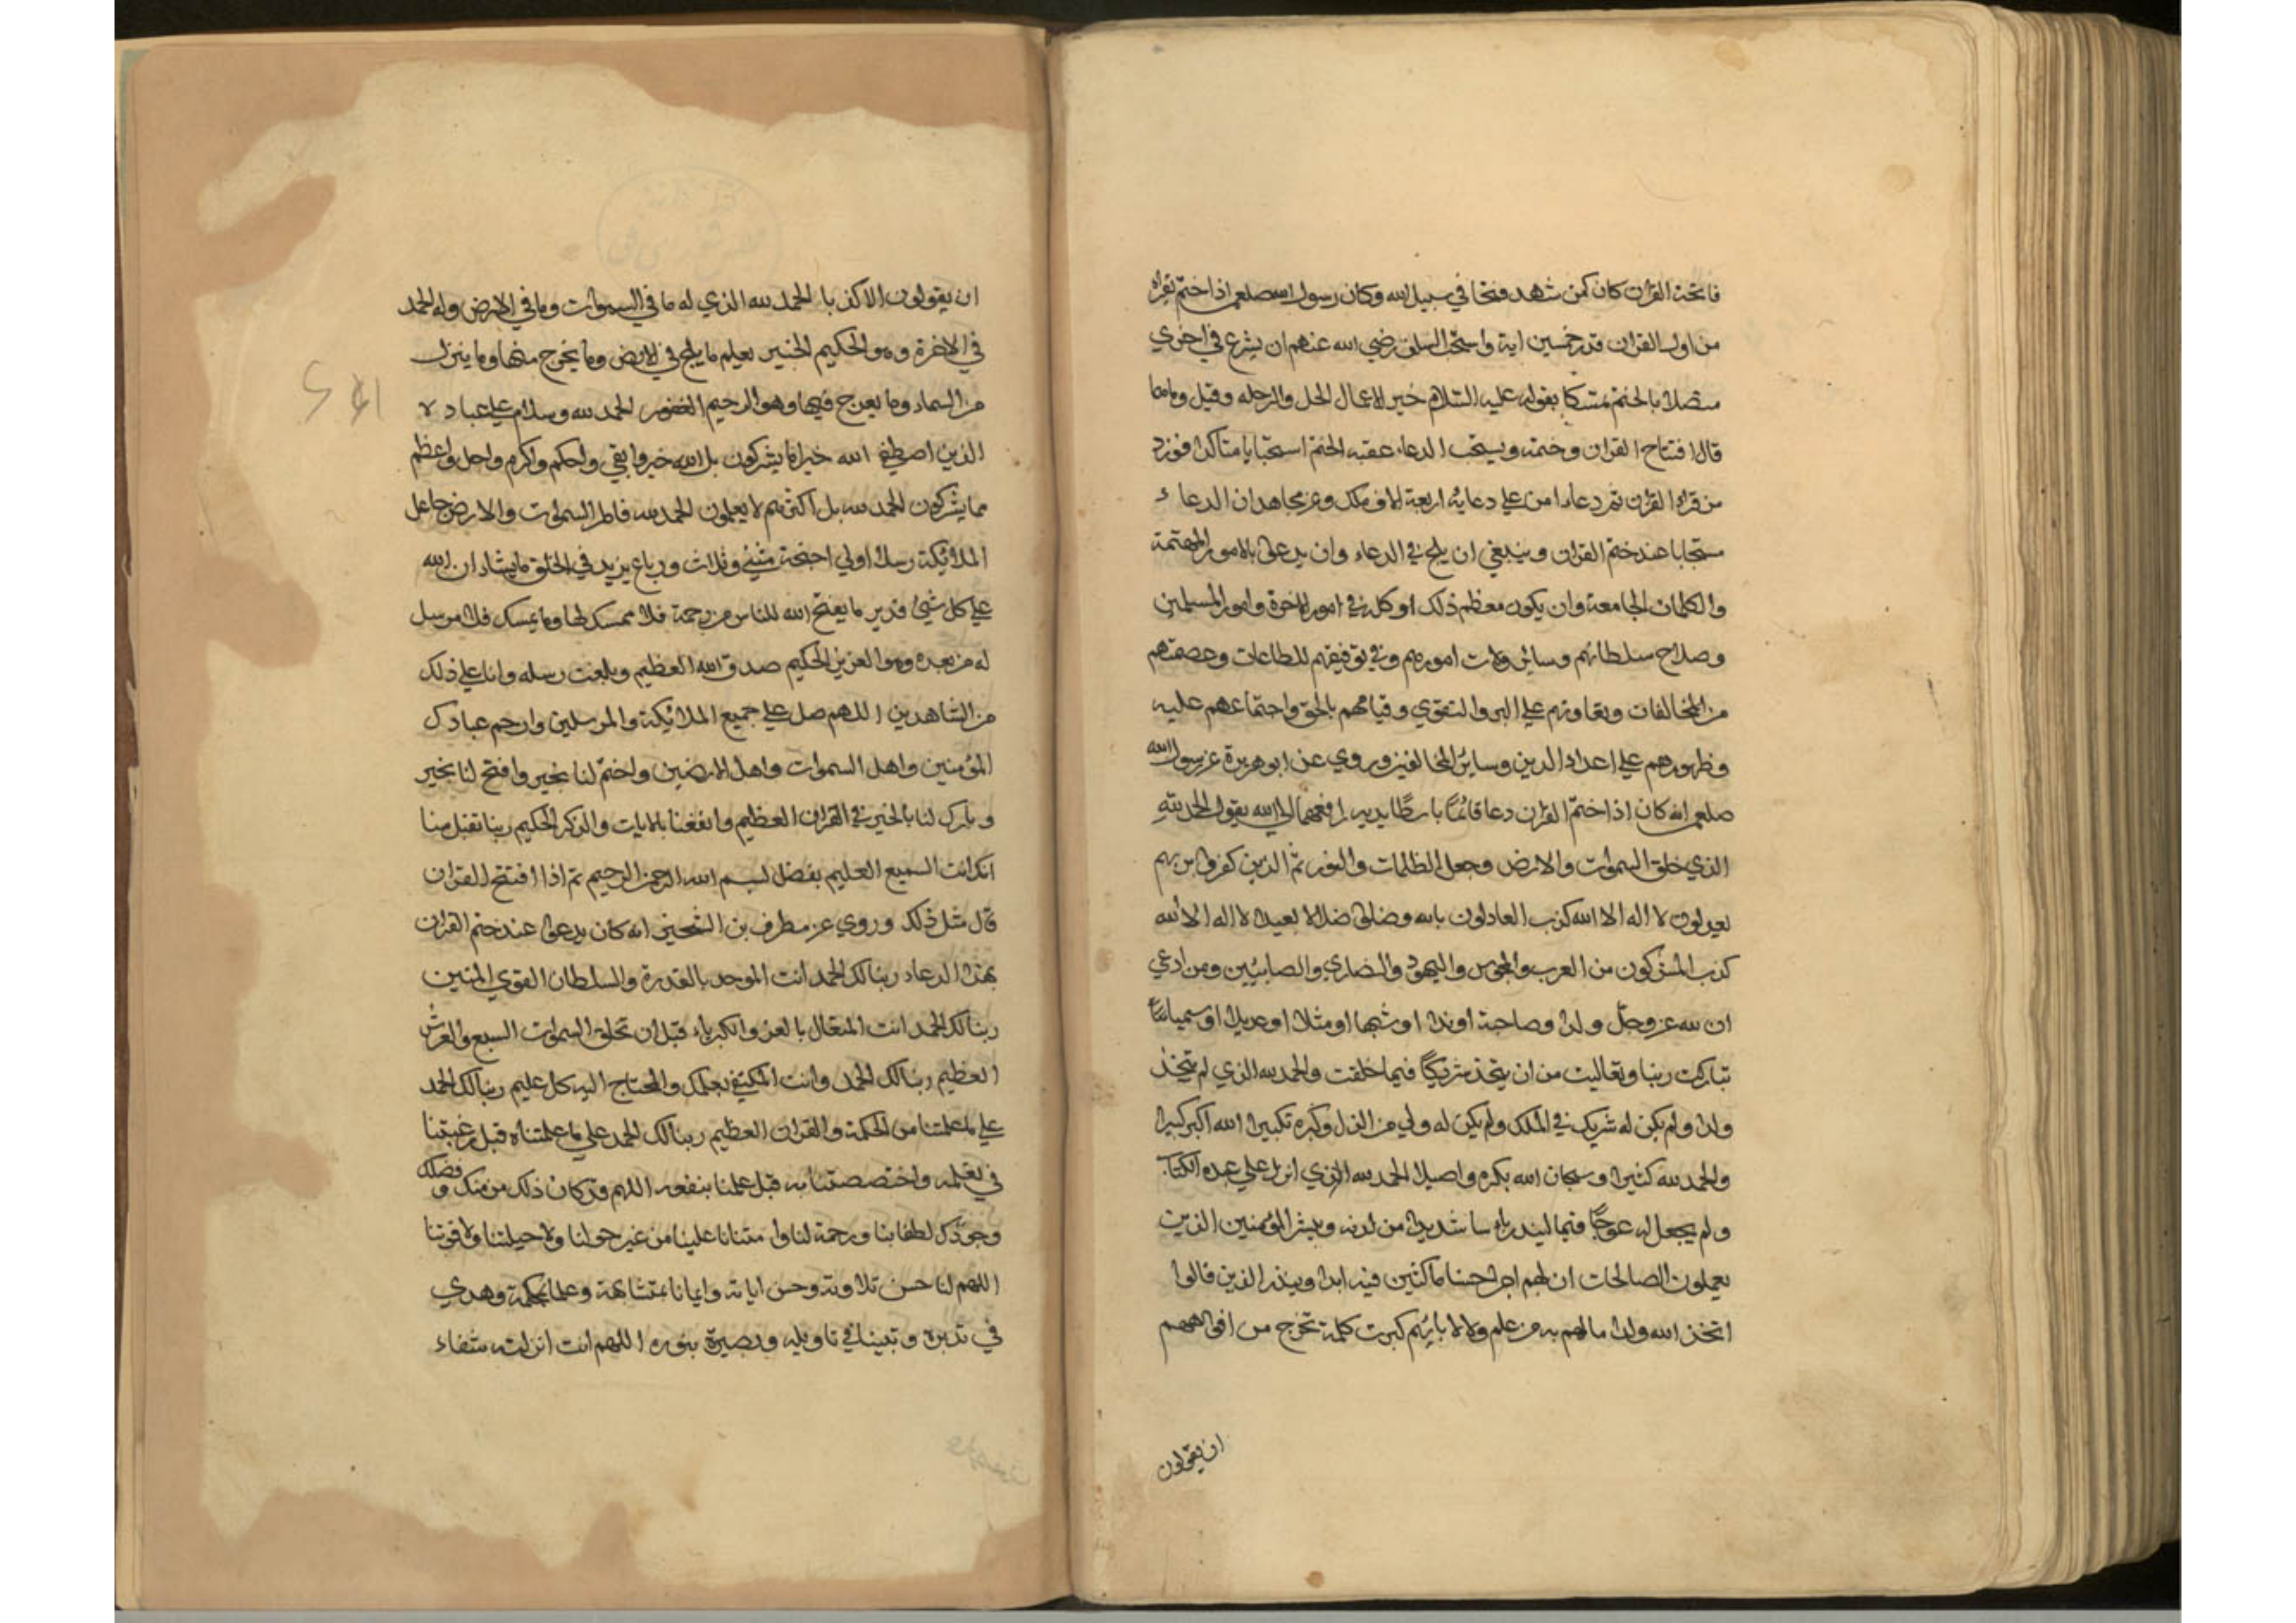 فاتحة القران كان كمن شهد فتحا في سبيل الله وكان رسول الله صلعم اذا ختم يقراء
من اول القران قدر خمسين اية واستحب السلف رضي الله عنهم ان يشرع في اخري
متصلا بالختم متمسكا بقوله عليه السلام خير الاعمال الحل والرحله وقيل وماهما
قال افتتاح القران وختمه ويستحب الدعاء عقبه الختم استحبابا متاكدا فورد
من قراء القران ثم دعاء امن علي دعايه اربعة الاف ملك وعن مجاهد ان الدعاء
مستجابا عند ختم القران وينبغي ان يلح في الدعاء وان يدعوا بالامور المهتمة
والكلمات الجامعة وان يكون معظم ذلك او كله في امور الاخرة وامور المسلمين
وصلاح سلطانهم وسائر ولات امورهم وفي توفيقهم للطاعات وعصمتهم
من المخالفات وتعاونهم علي البر والتقوي وقيامهم بالحق واجتماعهم عليه
وظهورهم علي اعداء الدين وسائر المخالفين وروي عن ابو هريرة عن رسول الله
صلعم انه كان اذا ختم القران دعا قائما باسطا يديه رافعهما الي الله يقول الحمد لله
الذي خلق السموات والارض وجعل الظلمات والنور ثم الذين كفروا بربهم
يعدلون لا اله الا الله كذب العادلون بالله وضلوا ضلالا بعيدا لا اله الا الله
كذب المشركون من العرب والمجوس واليهود والنصاري والصابئين ومن ادعي
ان لله عز وجل ولدا وصاحبة او ندا او شبها او مثلا او عديلا او سميا
تباركت ربنا وتعاليت من ان يتخذ شريكا فيما خلقت والحمد لله الذي لم يتخذ
ولدا ولم يكن له شريك في الملك ولم يكن له ولي من الذل وكبره تكبيرا الله اكبر كبيرا
والحمد لله كثيرا وسبحان الله بكرة واصيلا الحمد لله الذي انزل علي عبده الكتاب
ولم يجعل له عوجا قيما لينذر باسا شديدا من لدنه ويبشر المؤمنين الذين
يعملون الصالحات ان لهم اجرا حسنا ماكثين فيه ابدا وينذر الذين قالوا
اتخذ الله ولدا ما لهم به من علم ولا لابائهم كبرت كلمة تخرج من افواههم
ان يقولون
ان يقولون الا كذبا الحمد لله الذي له ما في السموات وما في الارض وله الحمد
في الاخرة وهو الحكيم الخبير يعلم ما يلج في الارض وما يخرج منها وما ينزل
من السماء وما يعرج فيها وهو الرحيم الغفور الحمد لله وسلام علي عباده
الذين اصطفي الله خير اما يشركون بل الله خير وابقي واحكم واكرم واجل واعظم
مما يشركون الحمد لله بل اكثرهم لا يعلمون الحمد لله فاطر السموات والارض جاعل
الملائكة رسلا اولي اجنحة مثني وثلاث ورباع يزيد في الخلق ما يشاء ان الله
علي كل شيئ قدير ما يفتح الله للناس من رحمة فلا ممسك لها وما يمسك فلا مرسل
له من بعده وهو العزيز الحكيم صدق الله العظيم وبلغت رسله وانا علي ذلك
من الشاهدين اللهم صل علي جميع الملائكة والمرسلين وارحم عبادك
المؤمنين واهل السموات واهل الارضين واختم لنا بخير وافتح لنا بخير
وبارك لنا بالخير في القران العظيم وانفعنا بالايات والذكر الحكيم ربنا تقبل منا
انك انت السميع العليم بفضل بسم الله الرحمن الرحيم ثم اذا افتتح القران
قال مثل ذلك وروي عن مطرف بن الشخير انه كان يدعوا عند ختم القران
بهذا الدعاء ربنا لك الحمد انت الموحد بالقدرة والسلطان القوي المتين
ربنا لك الحمد انت المتعال بالعز والكبرياء قبل ان تخلق السموات السبع والعرش
العظيم ربنا لك الحمد وانت المكتفي بعلمك والمحتاج اليه كل عليم ربنا لك الحمد
علي ما علمتنا من الحكمة والقران العظيم ربنا لك الحمد علي ما علمتناه قبل رغبتنا
في تعلمه واختصصتنا به قبل علمنا بنفعه اللهم قد كان ذلك من منك وفضلك
وجودك لطفا بنا ورحمة لنا وامتنانا علينا من غير حولنا ولا حيلتنا ولا قوتنا
اللهم لنا حسن تلاوته وحسن اياته وايمانا بمتشابهه وعملا بحكمه وهدي
في تدبره وتبينا في تاويله وبصيرة بنوره اللهم انت انزلته شفاء